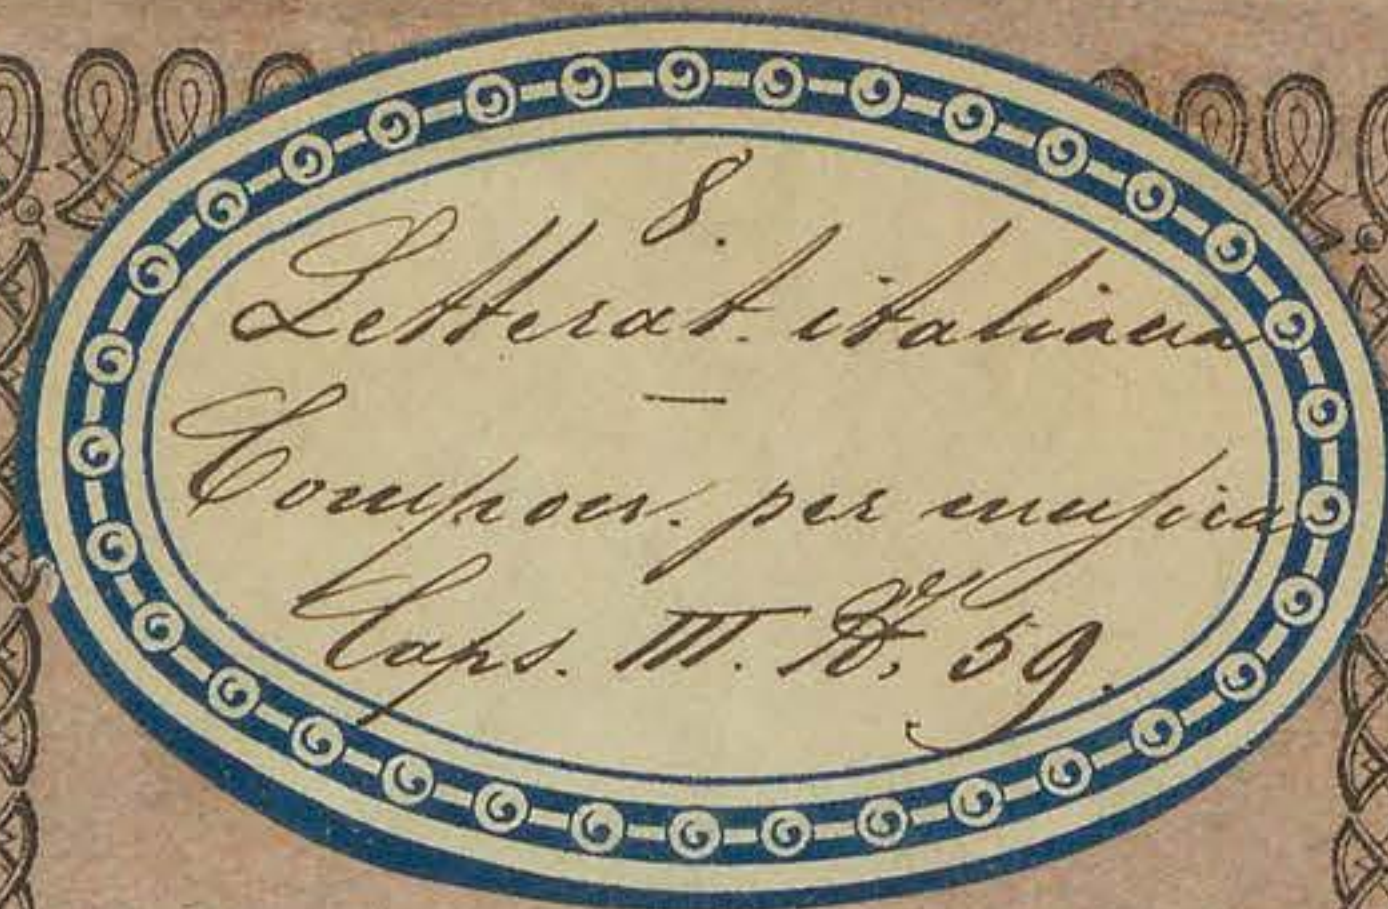 8.
Letterat. italiana
—
Compon. per musica
Caps. III. № 59.